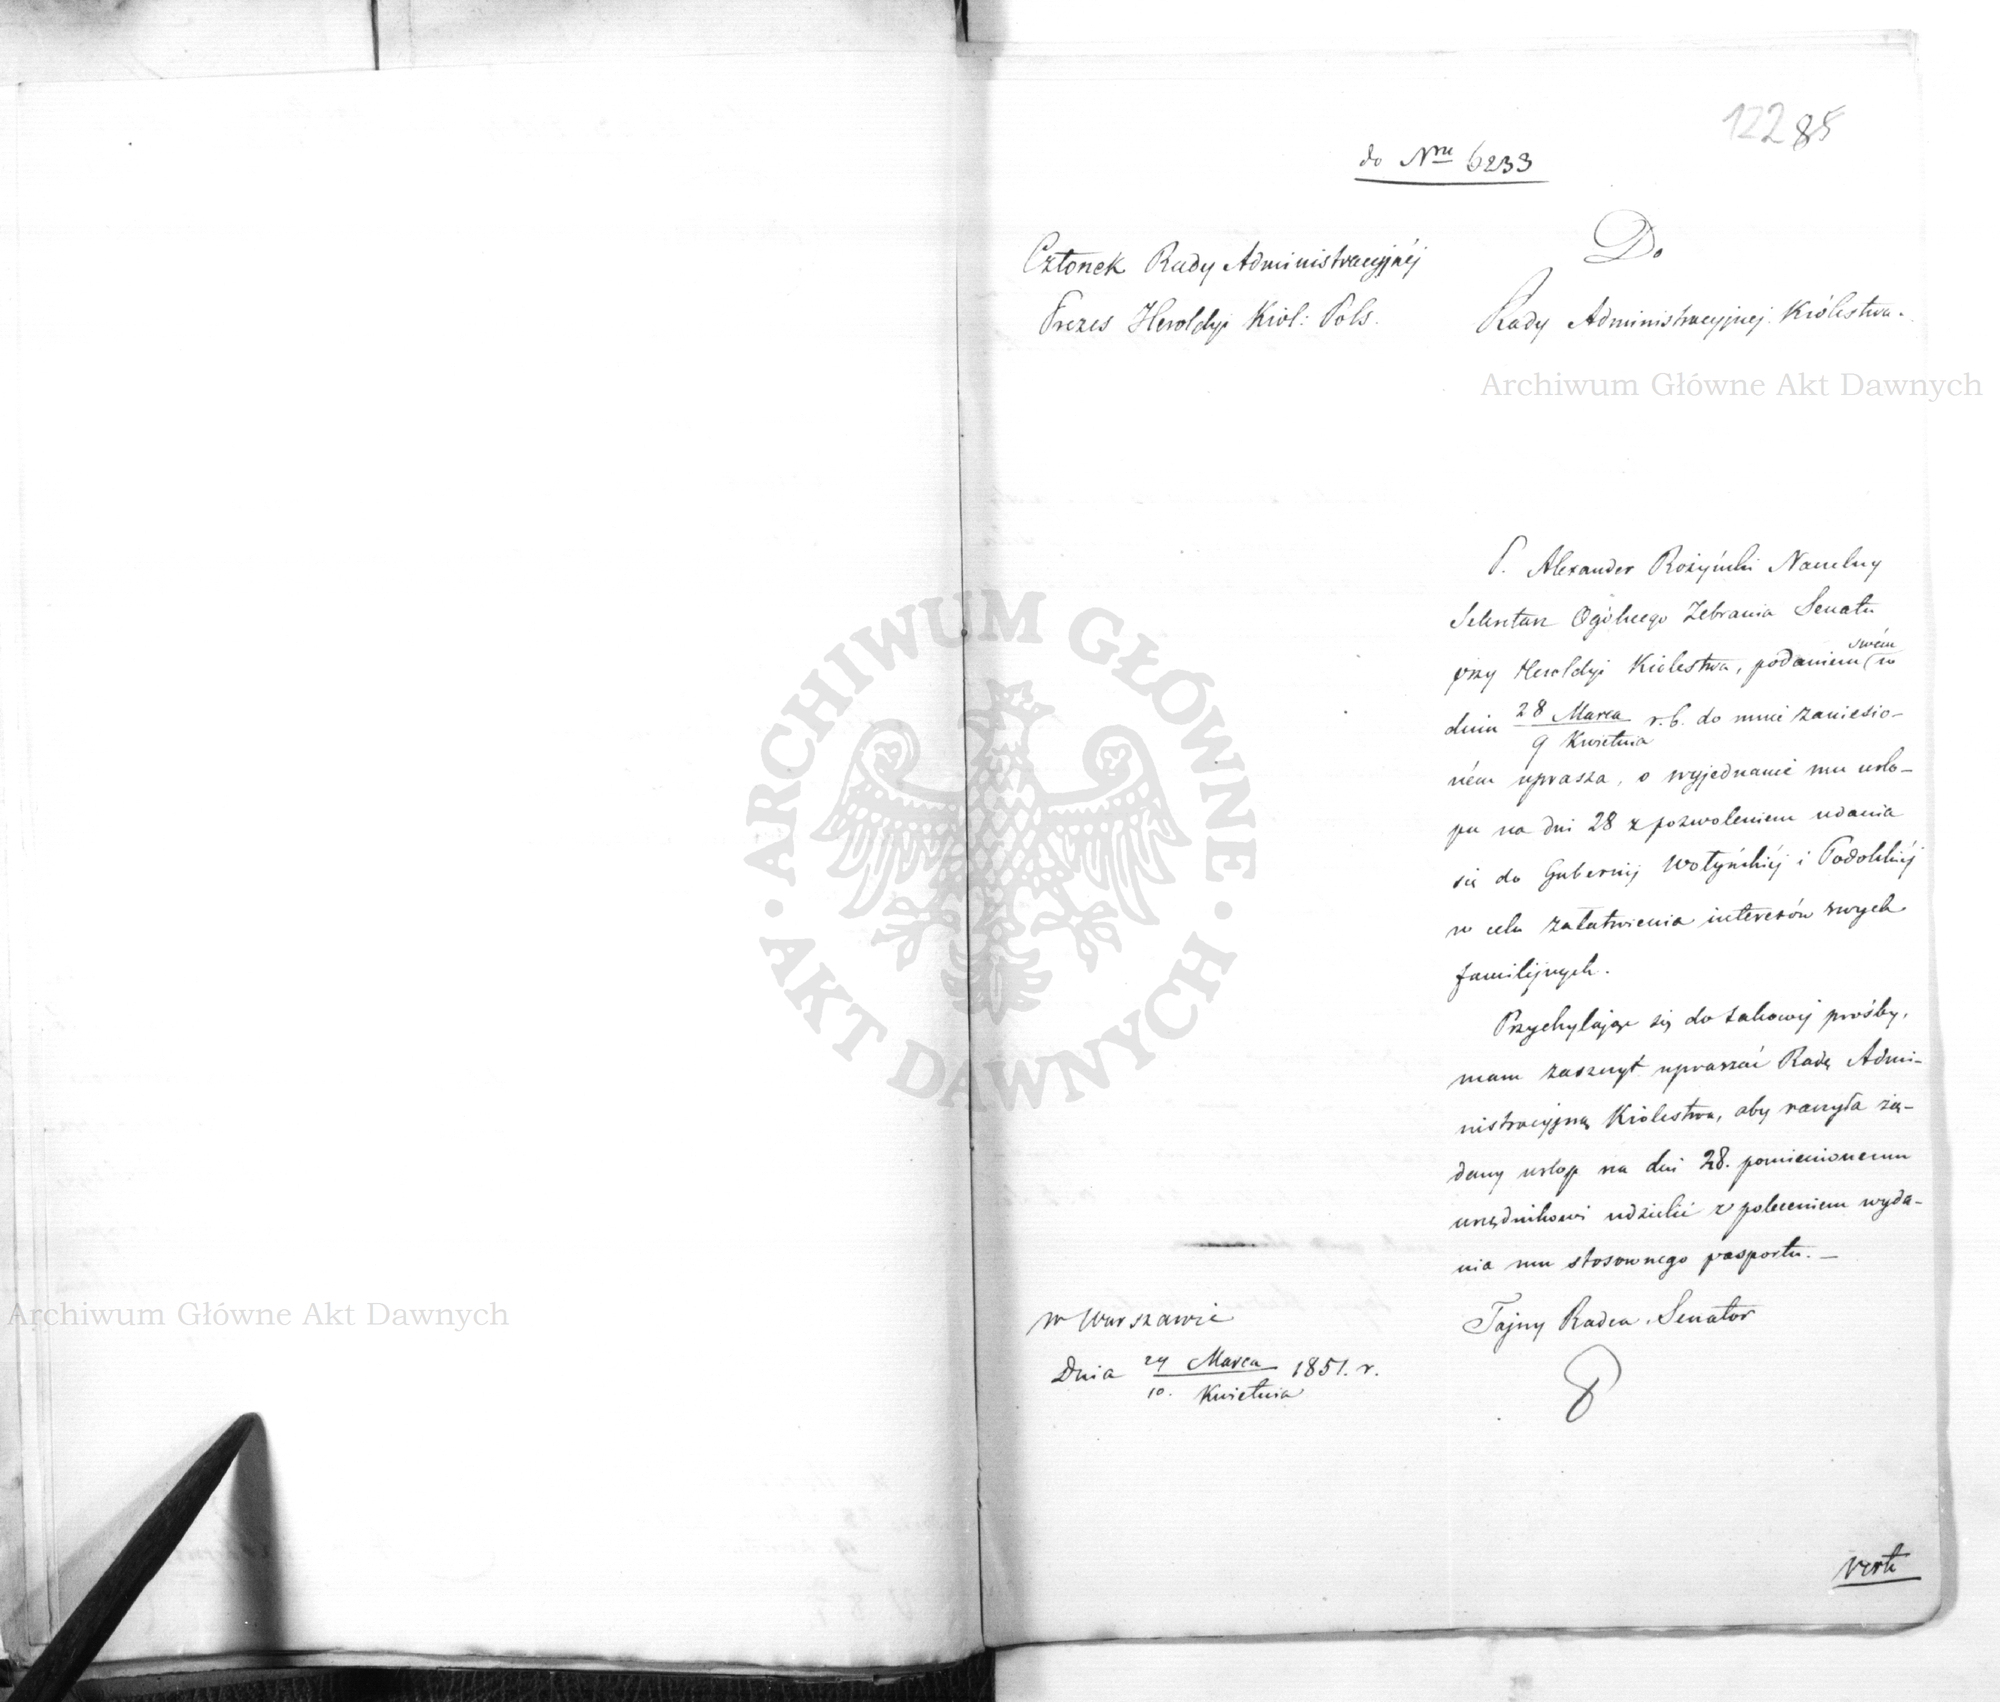 122 85
do Nru 6233
Członek Rady Administracyjnéj
Prezes Heroldyi Król: Pols.
Do
Rady Administracyjnej Królestwa.
Archiwum Główne Akt Dawnych
P. Alexander Rożyński Naczelny
Sekretarz Ogólnego Zebrania Senatu
przy Heroldyi Królestwa, podaniem swém w
dniu 28 Marca / 9 Kwietnia r. b. do mnie zaniesio-
ném uprasza, o wyjednanie mu urlo-
pu na dni 28 z pozwoleniem udania
się do Gubernij Wołyńskiéj i Podolskiéj
w celu załatwienia interesów swych
familijnych.
Przychylając się do takowéj prośby,
mam zaszczyt upraszać Radę Admi-
nistracyjną Królestwa, aby raczyła żą-
dany urlop na dni 28. pomienionemu
urzędnikowi udzielić z poleceniem wyda-
nia mu stosownego pasportu. —
w Warszawie
Dnia 29 Marca / 10. Kwietnia 1851. r.
Tajny Radca, Senator
verte
ARCHIWUM GŁÓWNE
AKT DAWNYCH
Archiwum Główne Akt Dawnych